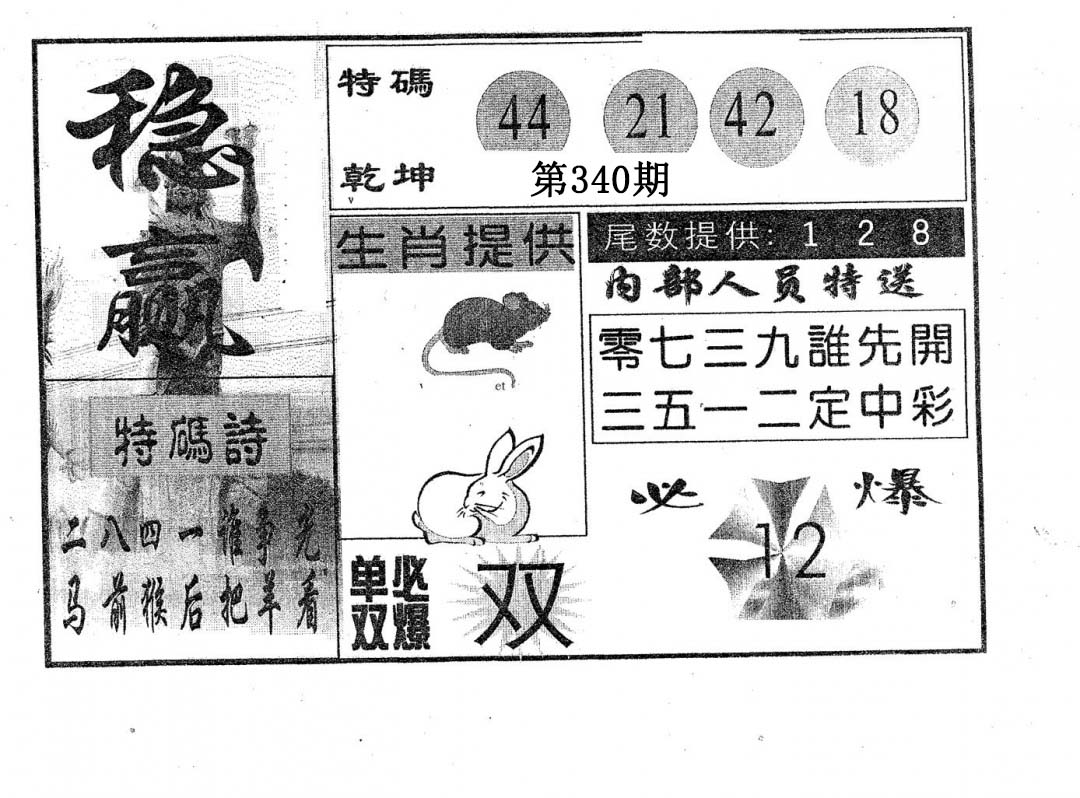 稳
赢
特碼
44 21 42 18
乾坤
第340期
生肖提供
et
尾数提供: 1 2 8
内部人员特送
零七三九誰先開
三五一二定中彩
特碼詩
二八四一谁争先
马前猴后把羊看
单必
双爆
双
必爆
12